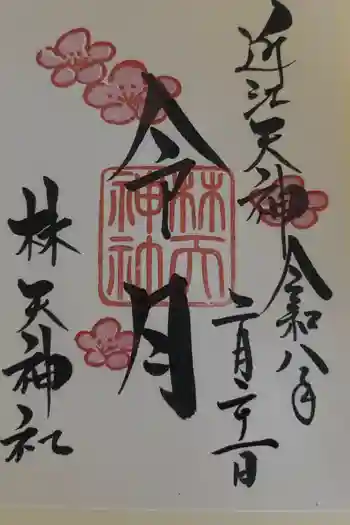 近江天神
令和八年
二月二十一日
令月
林天
神社
林天神社